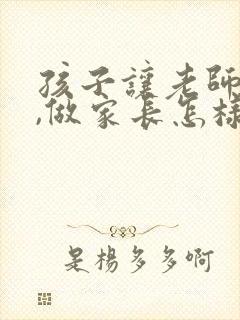 孩子讓老師
,做家長怎樣
是楊多多啊